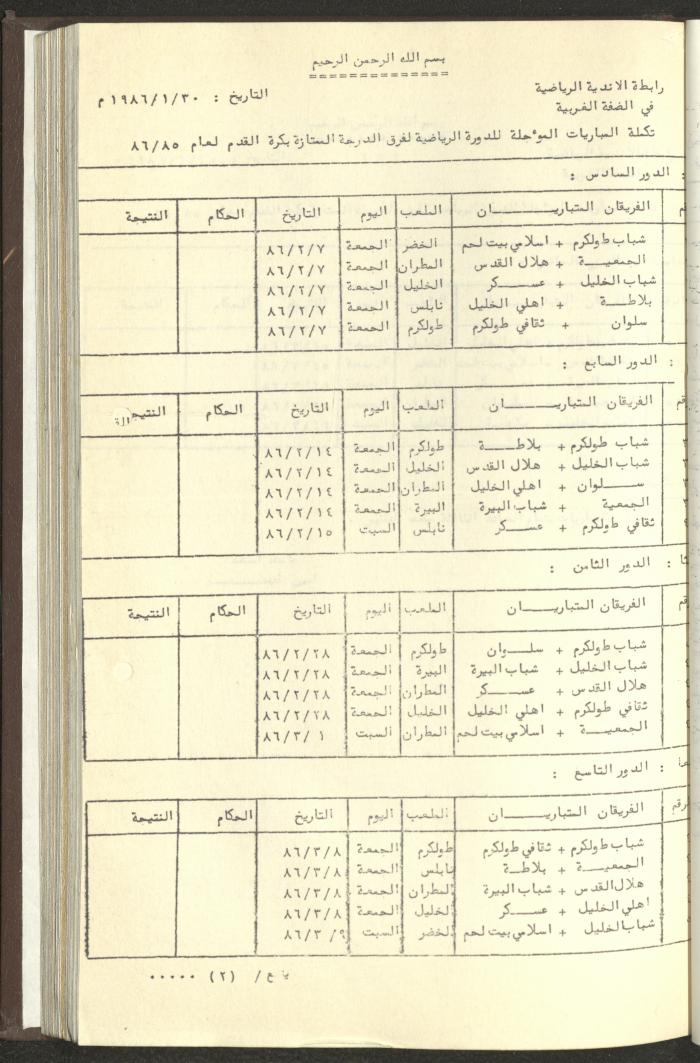 بسم الله الرحمن الرحيم
رابطة الاندية الرياضية
في الضفة الغربية
التاريخ : ١٩٨٦/١/٣٠ م
تكملة المباريات المؤجلة للدورة الرياضية لفرق الدرجة الممتازة بكرة القدم لعام ٨٦/٨٥
: الدور السادس :
م الفريقان المتباريـــــــان الملعب اليوم التاريخ الحكام النتيجة
شباب طولكرم + اسلامي بيت لحم الخضر الجمعة ٨٦/٢/٧
الجمعيـــة + هلال القدس المطران الجمعة ٨٦/٢/٧
شباب الخليل + عســـكر الخليل الجمعة ٨٦/٢/٧
بلاطـــة + اهلي الخليل نابلس الجمعة ٨٦/٢/٧
سلوان + ثقافي طولكرم طولكرم الجمعة ٨٦/٢/٧
: الدور السابع :
قم الفريقان المتباريـــــــان الملعب اليوم التاريخ الحكام النتيجة
شباب طولكرم + بلاطـــة طولكرم الجمعة ٨٦/٢/١٤
شباب الخليل + هلال القدس الخليل الجمعة ٨٦/٢/١٤
ســـلوان + اهلي الخليل المطران الجمعة ٨٦/٢/١٤
الجمعية + شباب البيرة البيرة الجمعة ٨٦/٢/١٤
ثقافي طولكرم + عســـكر نابلس السبت ٨٦/٢/١٥
: الدور الثامن :
قم الفريقان المتباريـــــــان الملعب اليوم التاريخ الحكام النتيجة
شباب طولكرم + سلـــوان طولكرم الجمعة ٨٦/٢/٢٨
شباب الخليل + شباب البيرة البيرة الجمعة ٨٦/٢/٢٨
هلال القدس + عســـكر المطران الجمعة ٨٦/٢/٢٨
ثقافي طولكرم + اهلي الخليل الخليل الجمعة ٨٦/٢/٢٨
الجمعيـــة + اسلامي بيت لحم المطران السبت ٨٦/٣/١
: الدور التاسع :
رقم الفريقان المتباريـــــــان الملعب اليوم التاريخ الحكام النتيجة
شباب طولكرم + ثقافي طولكرم طولكرم الجمعة ٨٦/٣/٨
الجمعيـــة + بلاطـــة نابلس الجمعة ٨٦/٣/٨
هلال القدس + شباب البيرة المطران الجمعة ٨٦/٣/٨
اهلي الخليل + عســـكر الخليل الجمعة ٨٦/٣/٨
شباب الخليل + اسلامي بيت لحم الخضر السبت ٨٦/٣/٩
(٢) ٠٠٠٠٠